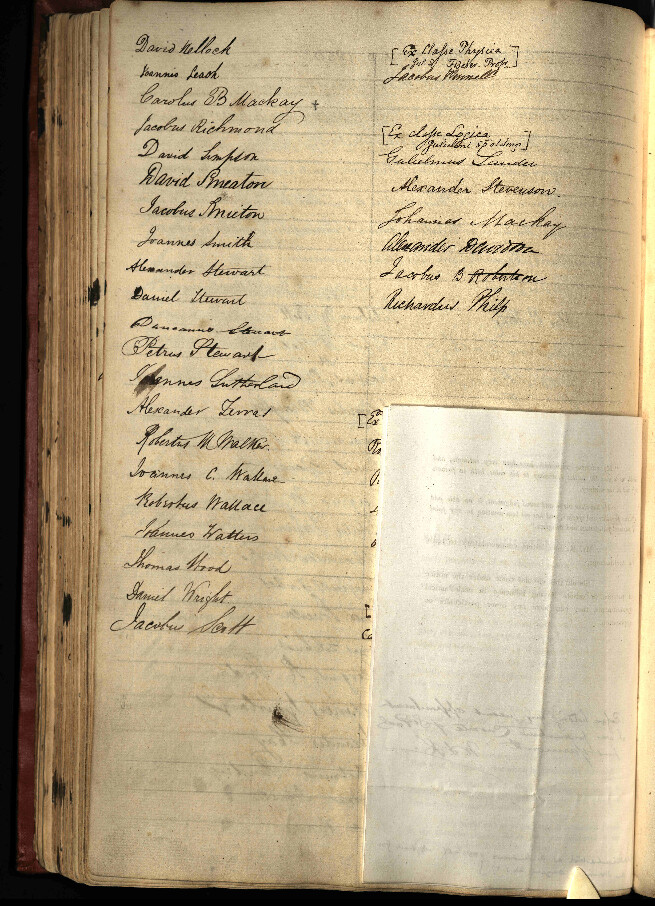 David Kellock
Joannis Leach
Carolus B Mackay +
Jacobus Richmond
David Simpson
David Smeaton
Jacobus Smieton
Joannes Smith
Alexander Stewart
Daniel Stewart
Duncanus Stewart
Petrus Stewart
Joannes Sutherland
Alexander Terras
Robertus M. Walker.
Joannes C. Wallace
Robertus Wallace
Joannes Watters
Thomas Wood
Daniel Wright
Jacobus Scott
[Ex Classe Physica
Profr.]
Jacobus
[Ex classe Logica
Gulielmi Spalding]
Gulielmus
Alexander Stevenson.
Johannes Mackay
Alexander Davidson
Jacobus B Robertson
Richardus Philp
[Ex